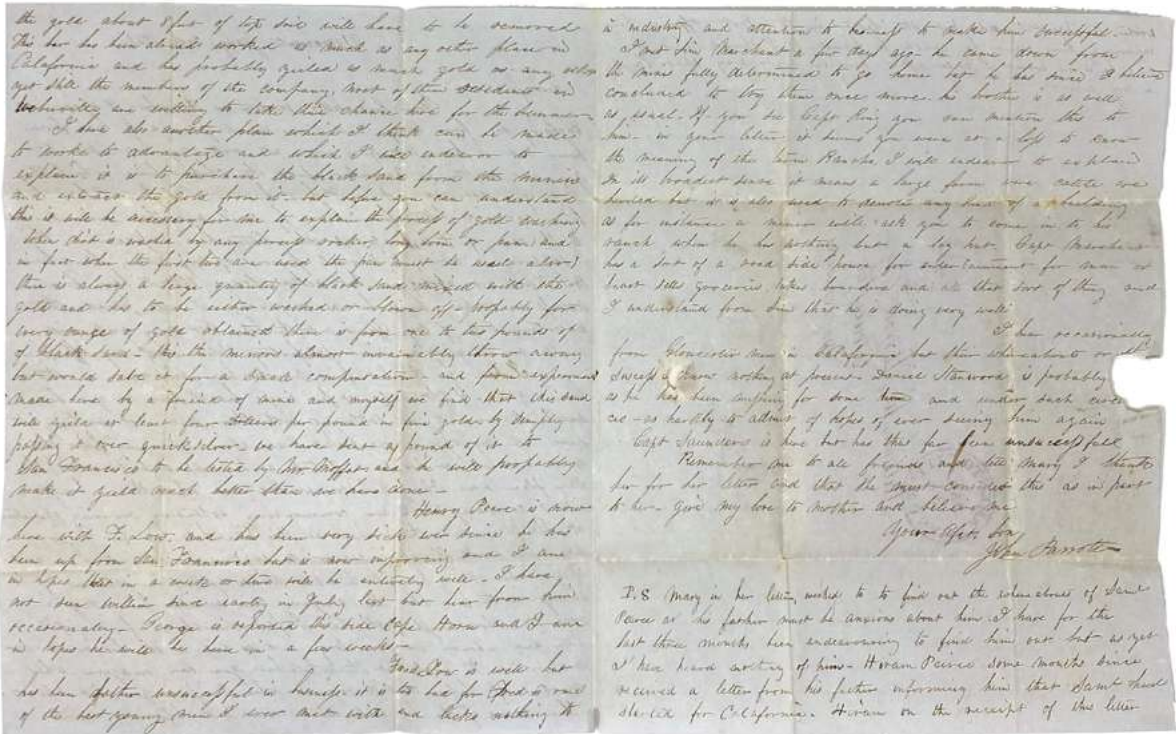 the gold about 8 feet of top soil will have to be removed
This bar has been already worked as much as any other place in
California and has probably yeiled as much gold as any other
yet still the members of the company, most of them residents in
are willing to take their chance here for the summer
I have also another plan which I think can be made
to worke to advantage and which I will endeavor to
explain it is to purchase the black sand from the miners
and extract the gold from it - but before you can understand
this it will be necessary for me to explain the process of gold washing
When dirt is washed by any process rocker, long tom or pan and
in fact when the first two are used the pan must be used also)
there is always a large quantity of black sand mixed with the
gold and has to be either washed or blown off - propably for
every ounce of gold obtained there is from one to two pounds of
of black sand - this the miners almost invariably throw away
but would save it for a small compensation and from experiments
made here by a friend of mine and myself we find that this sand
will yield at least four Dollars per pound in fine gold by simply
passing it over quicksilver - we have sent a pound of it to
San Francisco to be tested by and he will propably
make it yield much better than we have done -
Henry Peirce is now
here with F. Low. and has been very sick ever since he has
been up from San Francisco but is now improving and I am
in hopes that in a week or two will be entirely well - I have
not seen William since early in July last but hear from him
occasionaly - George is reported this side Cape Horn and I am
in hopes he will be here in a few weeks -
Fred Low is well but
has been rather unsuccessful in business it is too bad for Fred is one
of the best young men I ever met with and lacks nothing to
in industry and attention to business to make him successful -
I met Jim Marchant a few days ago he came down from
the mines fully determined to go home but he has since I believe
concluded to try them once more - his brother is as well
as usual. If you see Capt King you can mention this to
him - in your letter I hear you were at a loss to know
the meaning of the term Rancho, I will endeavor to explain
In its broadest sense it means a large farm
but it is also used to denote any kind of a building
as for instance a miner will ask you to come in to his
ranch when he has nothing but a log hut. Capt Marchant
has a sort of a road side house for entertainment for man or
beast sells groceries, takes boarders and all that sort of thing and
I understand from him that he is doing very well
I hear occasionally
from Gloucester men in California but their whereabouts or
success I know nothing at present. Daniel Stanwood is probably
as he has been for some time and under such
as hardly to admit of hopes of ever seeing him again
Capt Saunders is here but has thus far been unsuccessfull
Remember me to all friends and tell Mary I thank
her for her letter and that she must consider this as in part
to her - give my love to mother and believe me
Your Afec. Son
John Parrott
P.S Mary in her letter wished to to find out the whereabouts of Saml
Peirce as his father must be anxious about him I have for the
last three months been endeavouring to find him out but as yet
I have heard nothing of him - Hiram Peirce some months since
received a letter from his father informing him that Saml had
started for California - Hiram on the receipt of this letter